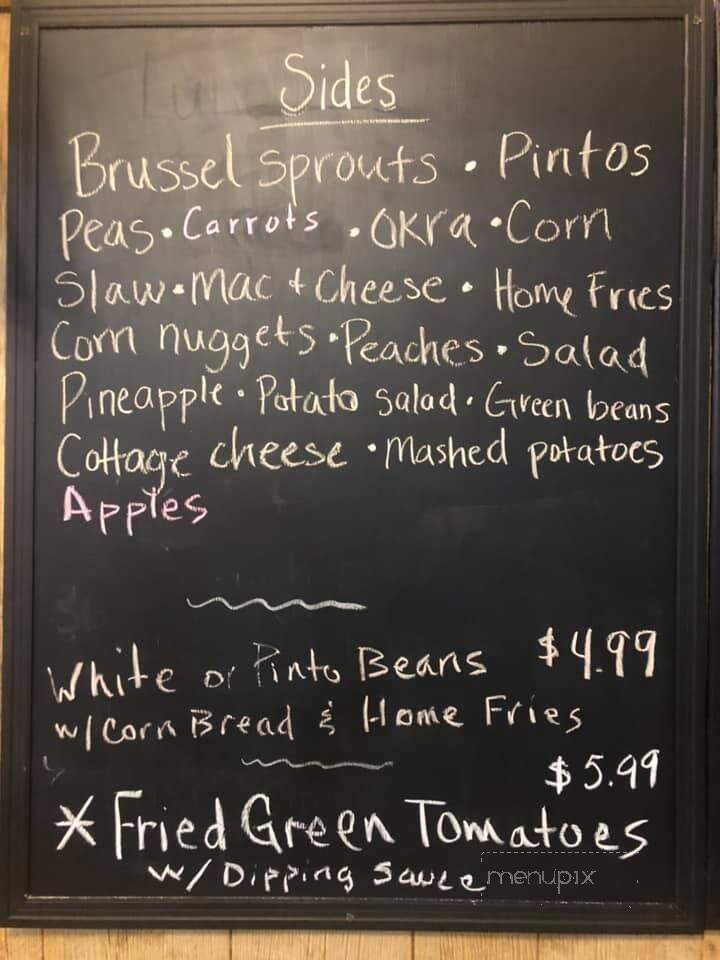 Sides
Brussel sprouts • Pintos
Peas • Carrots • Okra • Corn
Slaw • Mac + Cheese • Home Fries
Corn nuggets • Peaches • Salad
Pineapple • Potato salad • Green beans
Cottage cheese • Mashed potatoes
Apples
White or Pinto Beans $4.99
w/ Corn Bread & Home Fries
$5.99
* Fried Green Tomatoes
w/ Dipping Sauce
menupix